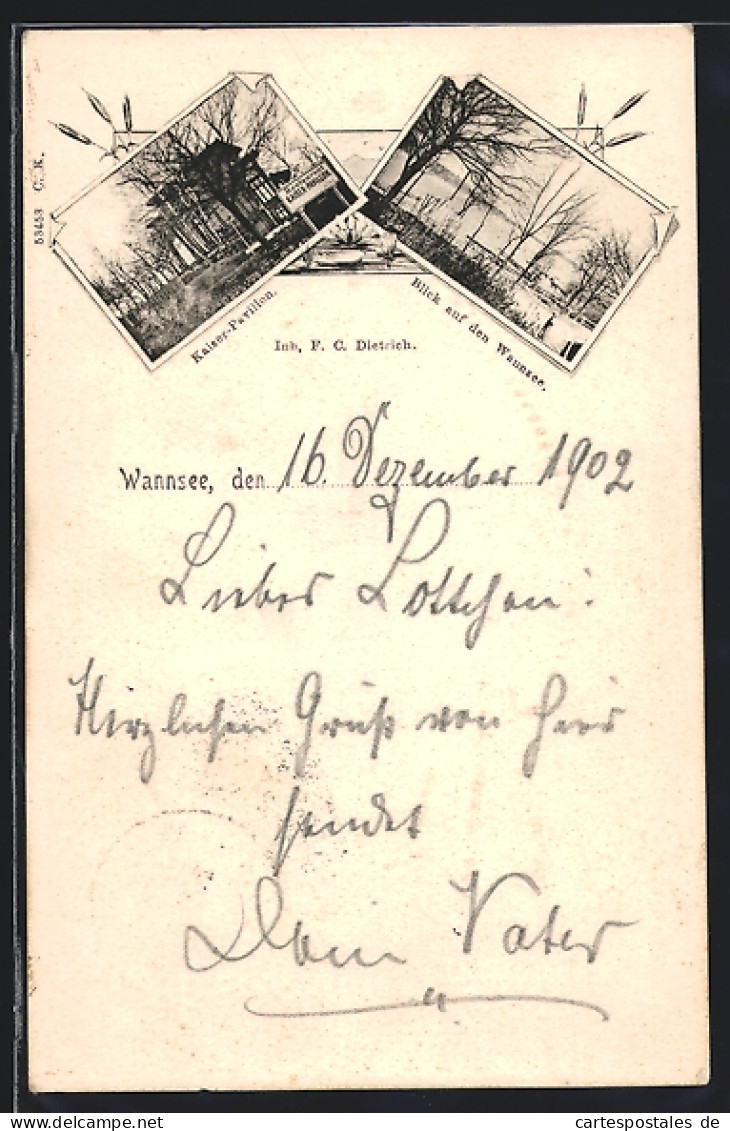 53453 C. K.
Kaiser-Pavillon.
Blick auf den Wannsee.
Inh, F. C. Dietrich.
Wannsee, den 16. Dezember 1902
Liebes Lottchen:
Herzlichen Gruß von hier
sendet
Dein Vater
cartespostales-de.com
cartespostales de